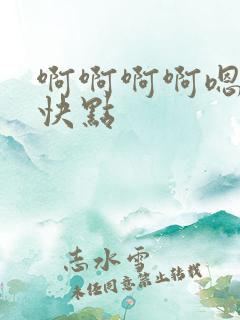 啊啊啊啊嗯
快點
志水雪
未经同意禁止转载